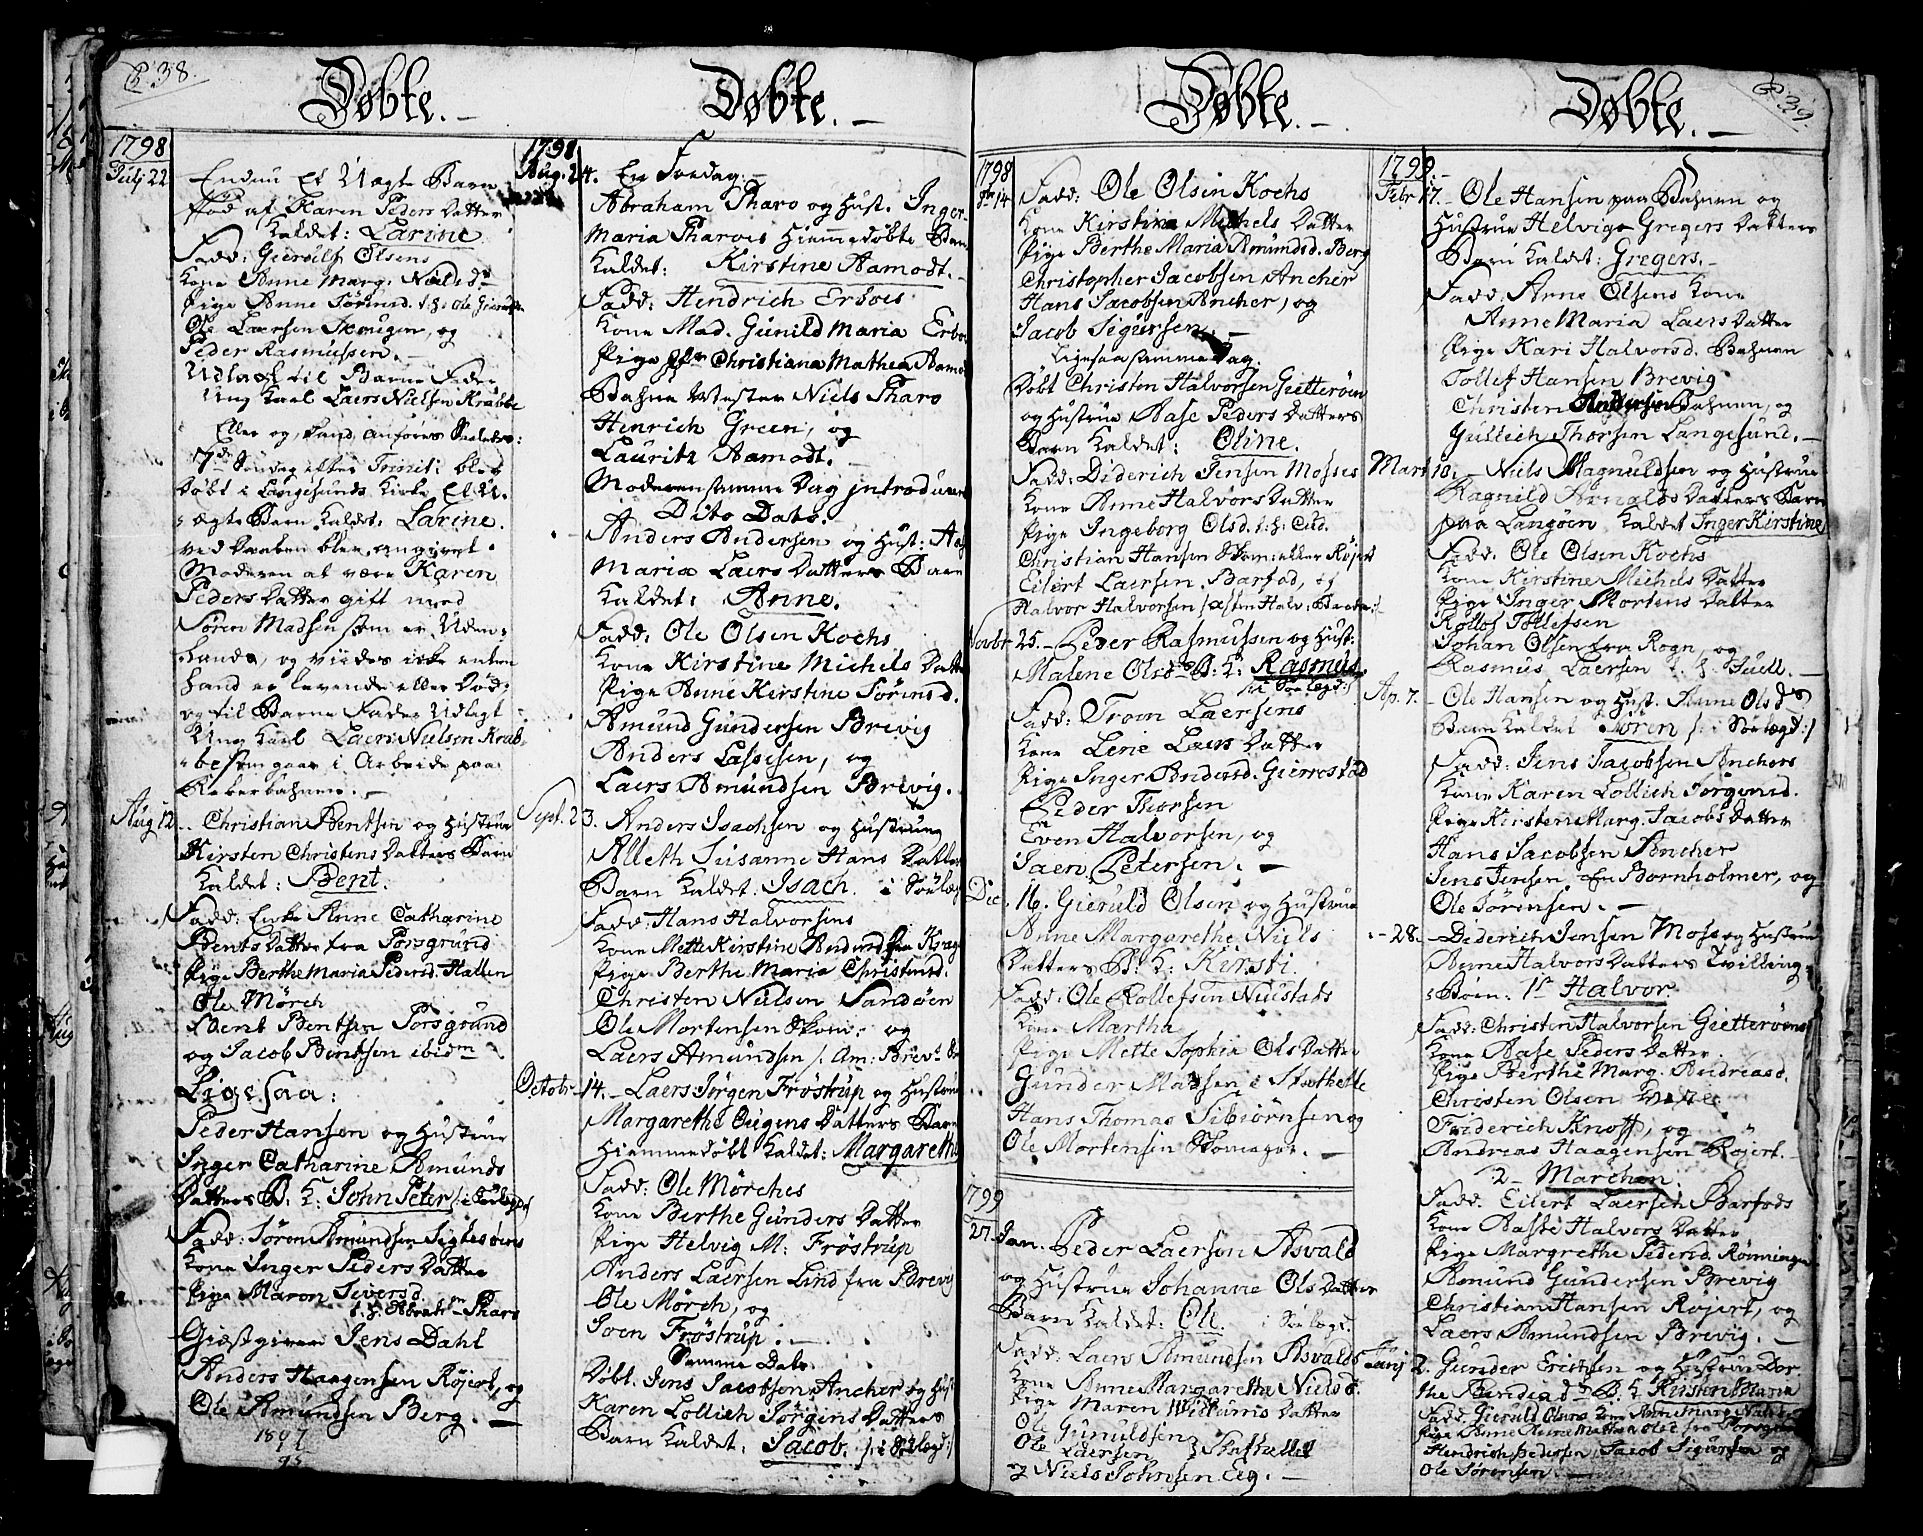 P. 38.
Døbte.
Døbte.
1798
Julj 22
Endnu Et Uægte Barn
fød af Karen Peders Datter
Kaldet: Larine
Fadd: Gierulf Olsens
Kone Anne Marg: Niels dr
Pige Anne Sørensd.
Ole Laersen Skougen, og
Peder Rasmussen.
Udlagt til Barne Fader
Ung Karl Laers Nielsen Krabbe
Eller og, kand anføres Saaledes:
7de Søndag efter Trinit: blev
døbt i Langesunds Kirke, Et U-
ægte Barn kaldet: Larine.
ved Daaben blev angivet
Moderen at være Karen
Peders Datter gift med
Søren Madsen som er Uden-
lands, og viides ikke enten
hand er levende eller Død:
og til Barne Fader Udlagt
Ung Karl Laers Nielsen Krab-
be som gaar i Arbeide paa
Reberbahnen.
Aug 12
Christian Bentsen og Hustrue
Kirsten Christens Datters Barn
Kaldet: Bent.
Fadd: Enke Anne Catharine
Bents Datter fra Porsgrund
Pige Berthe Maria Pedersd. Halten
Ole Mørch
Bent Bentsen Porsgrund
og Jacob Bentsen ibidm
Ligesaa:
Peder Hansen og Hustrue
Inger Catharine Amunds
Datters B. K: John Peter
Fadd: Søren Amundsen Sigtesøens
Kone Inger Peders Datter
Pige Maren Siversd.
Giæstgiver Jens Dahl
Anders Haagensen Røjert, og
Ole Amundsen Berg.
1798
Aug. 24.
En Fredag.
Abraham Pharo og Hust. Inger
Maria Pharoes Hiemmedøbte Barn
Kaldet: Kirstine Aamodt.
Fadd: Hendrich Erboes
Kone Mad. Gunild Maria Erboe
Pige Jfr Christiana Mathea Aamodt
Bahne Mester Niels Pharo
Henrich Green, og
Lauritz Aamodt.
Moderen samme Dag introduceret
Dito Dato.
Anders Andersen og Hust: Aase
Maria Laers Datters Barn
Kaldet: Anne.
Fadd: Ole Olsen Kochs
Kone Kirstine Michels Datter
Pige Anne Kirstine Sørensd.
Amund Gundersen Brevig
Anders Lassesen, og
Laers Amundsen Brevig.
Sept. 23.
Anders Isachsen og Hustrue
Alleth Susanne Hans Datter
Barn Kaldet: Isach. i Søelægd
Fadd: Hans Halvorsens
Kone Mette Kirstine
Pige Berthe Maria Christensd.
Christen Nielsen Sandøen
Ole Mortensen Skom: og
Laers Amundsen
Octobr 14.
Laers Jørgen Frøstrup og Hustrue
Margarethe Ougens Datters Barn
Hiemmedøbt Kaldet: Margarethe
Fadd: Ole Mørches
Kone Berthe Gunders Datter
Pige Helvig M: Frøstrup
Anders Laersen Lind fra Brevig
Ole Mørch, og
Joen Frøstrup.
Samme Dato
Døbt Jens Jacobsen Ancher og Hust
Karen Lollich Jørgens Datters
Barn Kaldet: Jacob. /: i Søelægd :/
Døbte.
Døbte.
P. 39.
1798
14
Fadd: Ole Olsen Kochs
Kone Kirstine Michels Datter
Pige Berthe Maria Amundsd. Berg
Christopher Jacobsen Ancher
Hans Jacobsen Ancher, og
Jacob Sigursen.
Ligesaa samme Dag.
Døbt Christen Halvorsen Gietterøen
og Hustrue Aase Peders Datters
Barn Kaldet: Oline.
Fadd: Diderich Jensen Mosses
Kone Anne Halvors Datter
Pige Ingeborg Olsd.
Christian Hansen Skomager Røjert
Eilert Laersen Barfod, og
Halvor Halvorsen
Novbr 25.
Peder Rasmussen og Hust:
Malene Olsd. B: K: Rasmus
/: i Søelægd :/
Fadd: Trom Laersens
Kone Lene Laers Datter
Pige Inger Andersd. Gierrestad
Peder Thorsen
Even Halvorsen, og
Saren Petersen.
Dec. 16.
Gieruld Olsen og Hustrue
Anne Margarethe Niels
Datters B: K: Kirsti.
Fadd: Ole Rollefsen Nustads
Kone Martha
Pige Mette Sophia Ols Datter
Gunder Madsen i Stathelle
Hans Thomas Sibiørnsen og
Ole Mortensen Skomager.
1799
27. Jan.
Peder Laerson Asvald
og Hustrue Johanne Ols Datter
Barn Kaldet: Ole. i Søelægd.
Fadd: Laers Amundsen Asvalds
Kone Anne Margaretha Nielsd.
Pige Maren Datter
Ole Gunuldsen
Ole Laersen Stathellet
og Niels Johnsen Eeg.
1799.
Febr 17.
Ole Hansen paa Bahnen og
Hustrue Helvige Gregers Datters
Barn Kaldet: Gregers.
Fadd: Arne Olsens Kone
Anne Maria Laers Datter
Pige Kari Halvorsd. Bahnen
Tollef Hansen Brevig
Christen Andersen Bahnen, og
Gullich Thorsen Langesund.
Mart 10.
Niels Magnuldsen og Hustrue
Ragnild Arnolds Datters Barn
paa Langøen Kaldet Inger Kirstine
Fadd: Ole Olsen Kochs
Kone Kirstine Michels Datter
Pige Inger Mortens Datter
Rollof Tollefsen
Johan Olsen fra Rogn, og
Rasmus Laersen
Ap. 7.
Ole Hansen og Hust. Anne Olsds
Barn Kaldet Søren /: i Søelægd:/
Fadd: Jens Jacobsen Anchers
Kone Karen Lollich Jørgensd.
Pige Kirstene Marg. Jacobs Datter
Hans Jacobsen Ancher
Jens Jensen en Bornholmer, og
Ole Sørensen.
- 28.
Dederich Jensen Moss og Hustrue
Anne Halvors Datters Tvilling-
Børn: 1te Halvor.
Fadd: Christen Halvorsen Gietterøens
Kone Aase Peders Datter
Pige Berthe Marg. Andreasd.
Christen Olsen
Friderich Knoff, og
Andreas Haagensen Røjert.
2- Marchen.
Fadd: Eilert Laersen Barfods
Kone Aasse Halvors Datter
Pige Margrethe Pedersd. Rønningen
Amund Gundersen Brevig
Christian Hansen Røjert, og
Laers Amundsen Brevig.
Junj 2.
Gunder Erichsen og Hustrue Dor-
the B. K. Kirsten Maria
Fadd: Gieruld Olsens Kone Anne Marg. Nielsd.
Pige Anne
Hendrich Pedersen, Jacob Sigursen og
Ole Sørensen